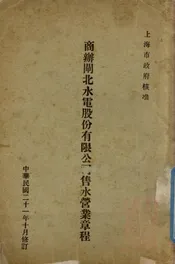 上海市政府核准
商辦閘北水電股份有限公司售水營業章程
中華民國二十一年十月修訂